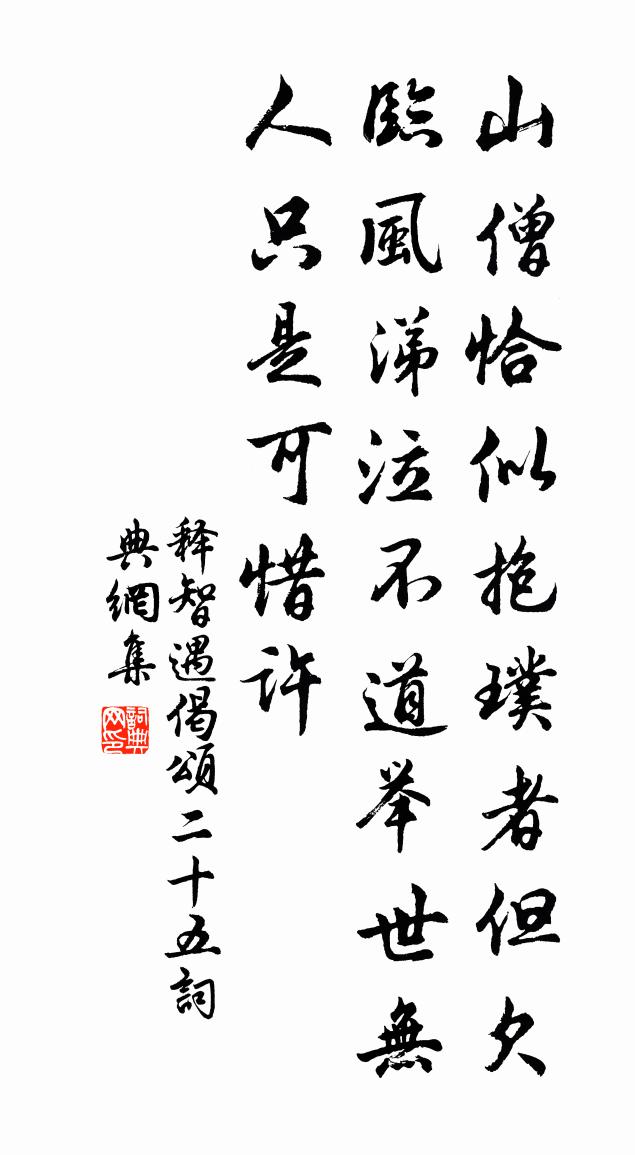 山僧恰似抱璞者但欠
臨風涕泣不道举世無
人只是可惜許
释智遇偈頌二十五詞
典網集
詞典
网印